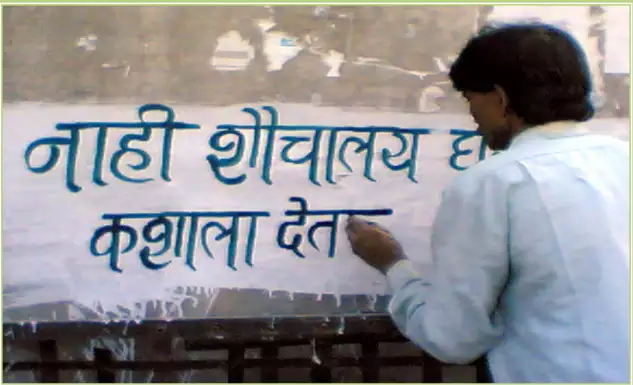 नाही शौचालय
कशाला देत